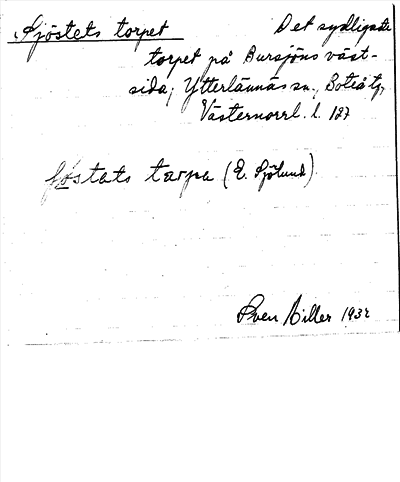 Sjöstets torpet Det sydligaste
torpet på Bursjöns väst-
sida, Ytterlännäs sn., Boteå tg,
Västernorrl. l. 127
stats tarpa (E. Sjölund)
Sven Hiller 1932